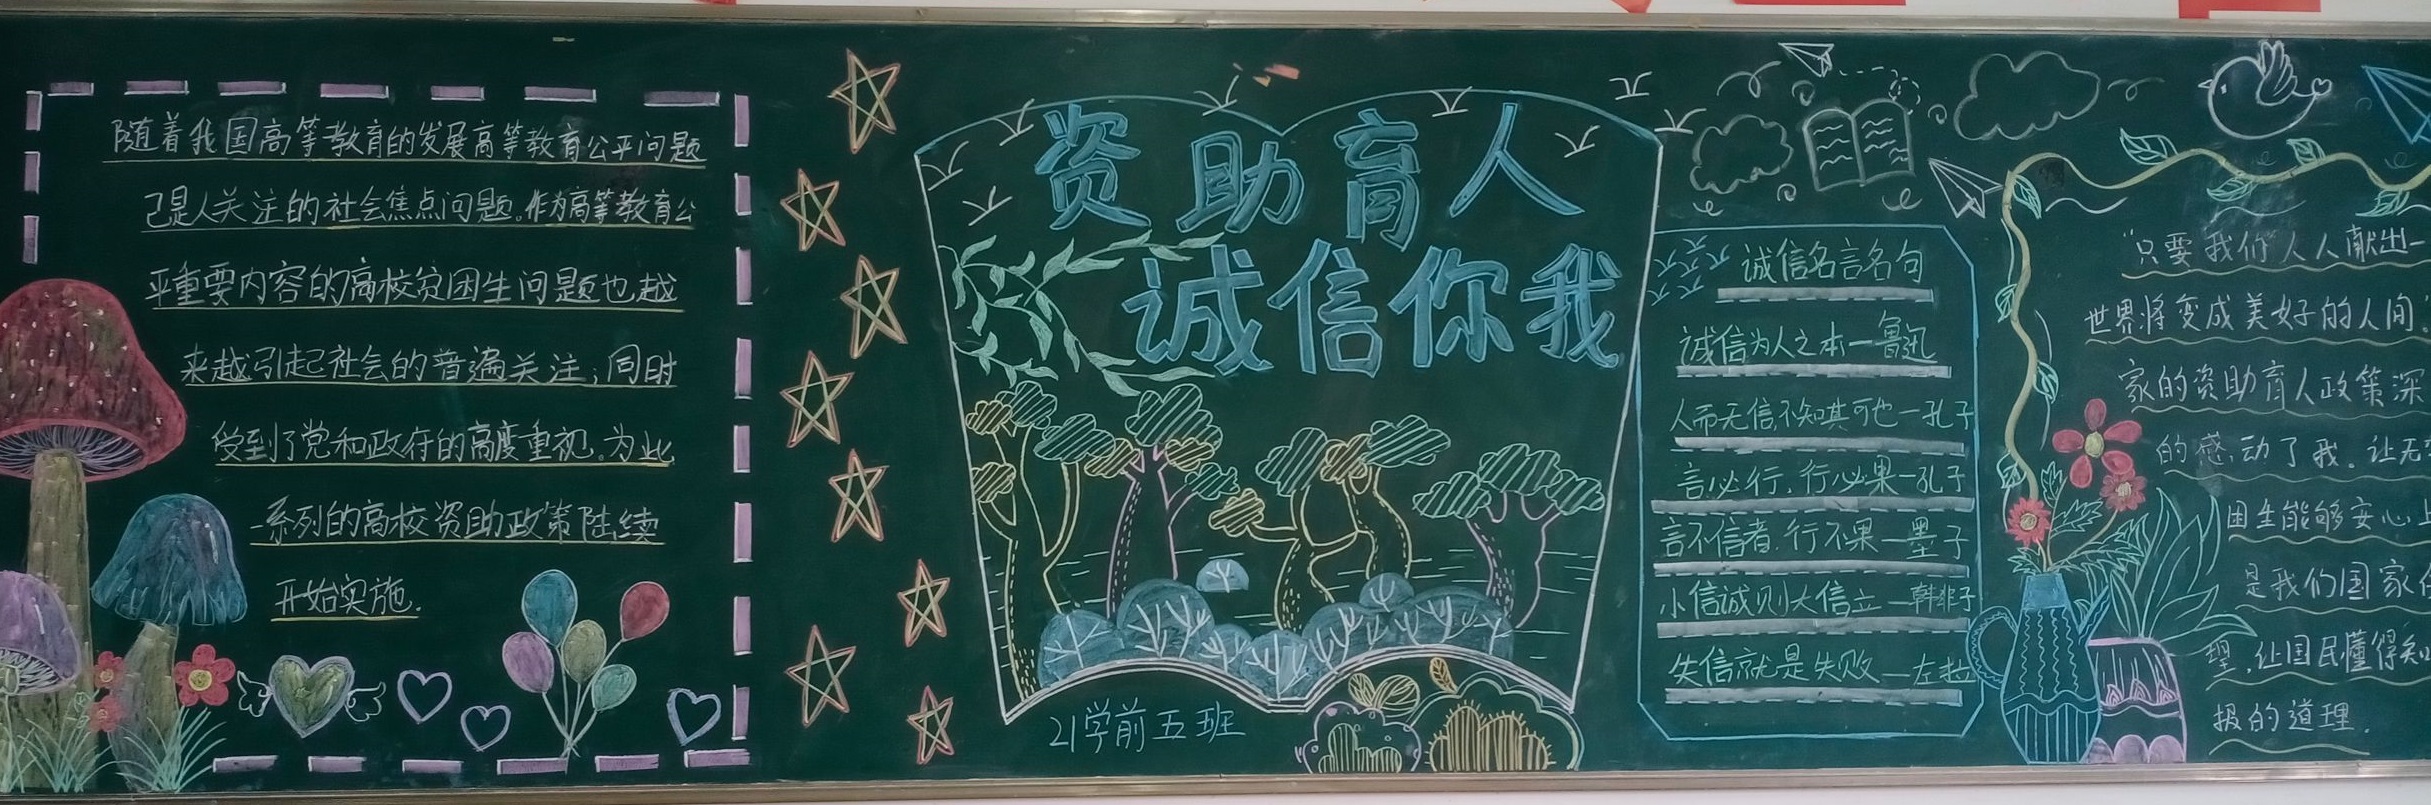 随着我国高等教育的发展高等教育公平问题
己是人关注的社会焦点问题。作为高等教育公
平重要内容的高校贫困生问题也越
来越引起社会的普遍关注；同时
受到了党和政府的高度重视。为此
一系列的高校资助政策陆续
开始实施.
资助育人
诚信你我
21学前五班
诚信名言名句
诚信为人之本一鲁迅
人而无信,不知其可也一孔子
言必行,行必果一孔子
言不信者.行不果一墨子
小信诚则大信立一韩非子
失信就是失败一左拉
"只要我们人人献出一
世界将变成美好的人间"
家的资助育人政策深
的感动了我.让无
困生能够安心
是我们国家
理,让国民懂得知
报的道理.